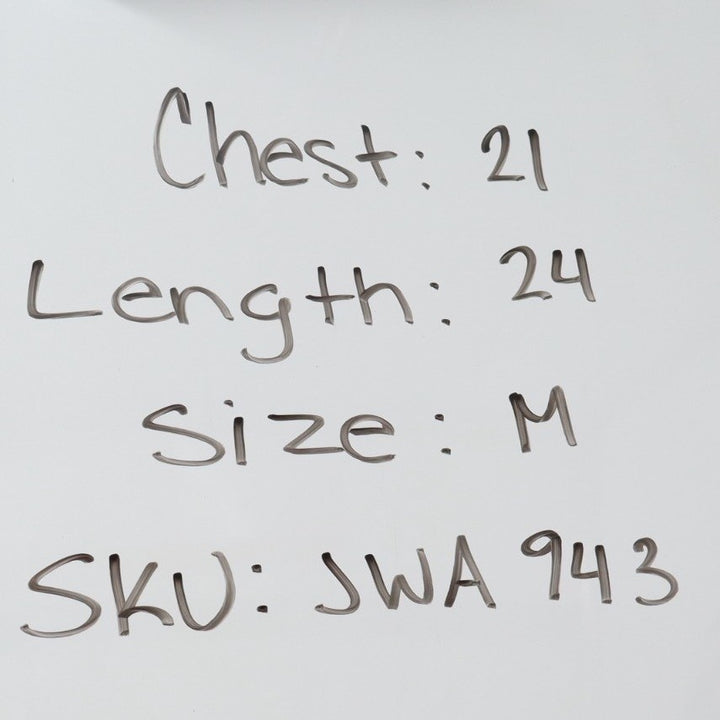 Chest: 21
Length: 24
Size: M
SKU: JWA 943